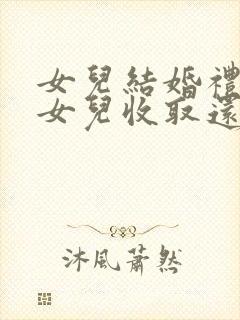 女兒結婚禮
女兒收取還
沐風蕭然